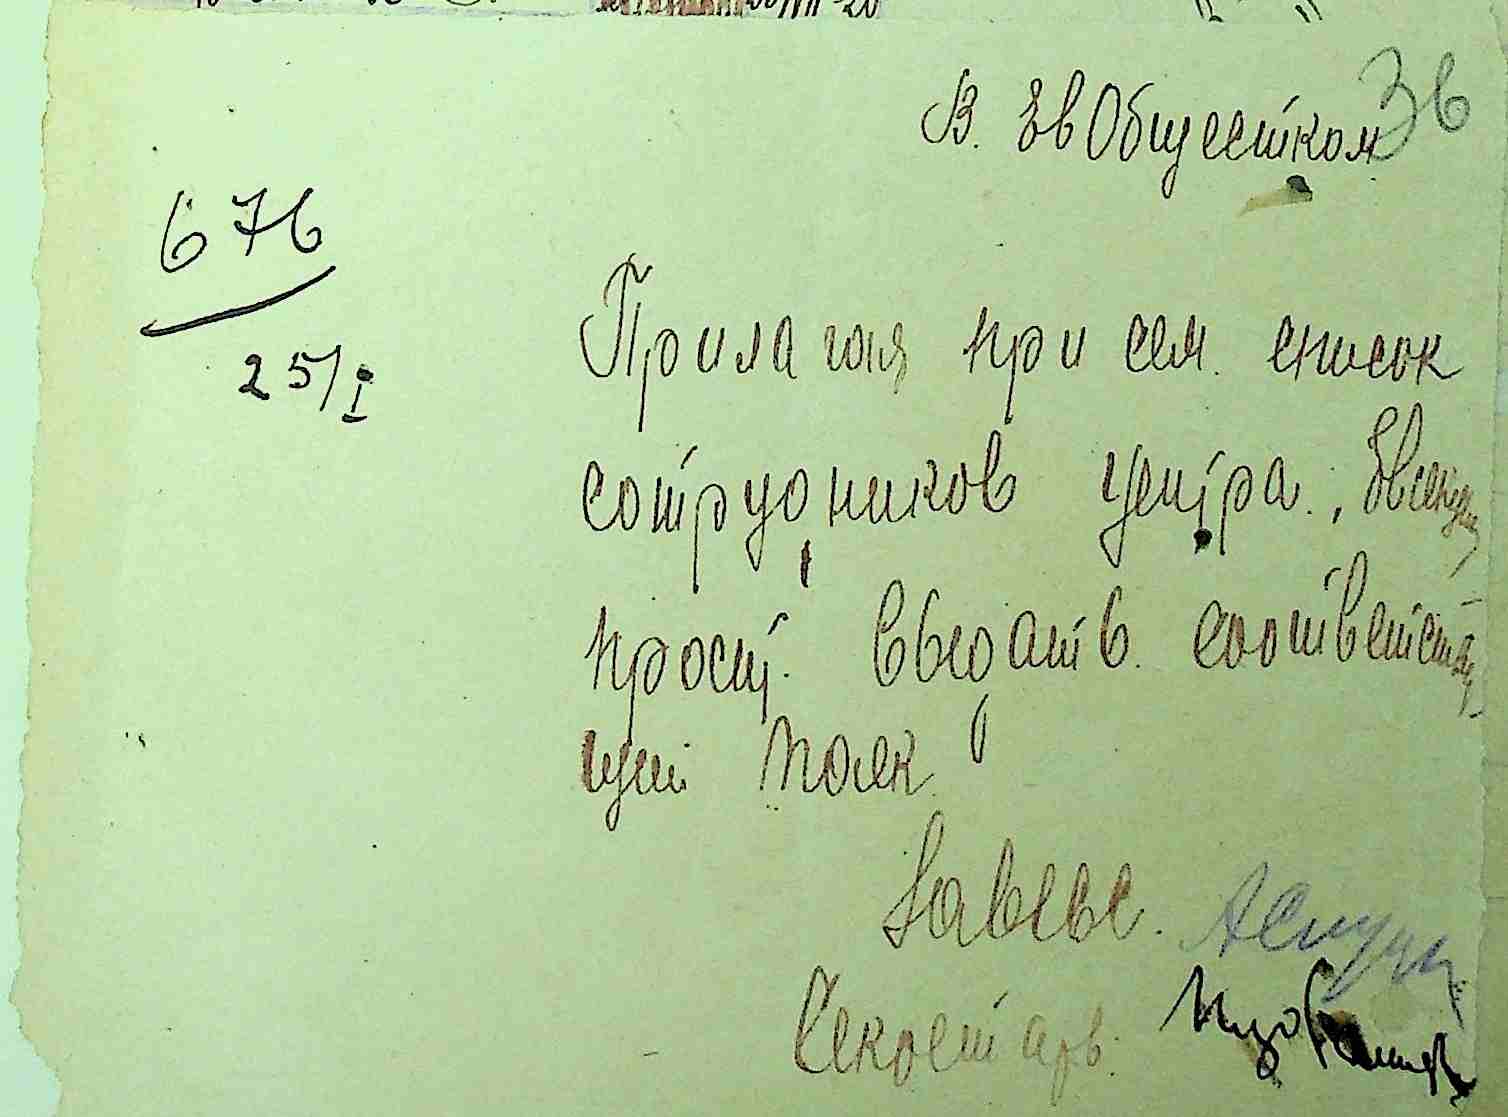 36
В. ЕвОбщестком
676
25/I
Прилагая при сем. список
сотрудников центра.,
просит. выдать. соответству
щий паек
Завевс.
Секретарь.